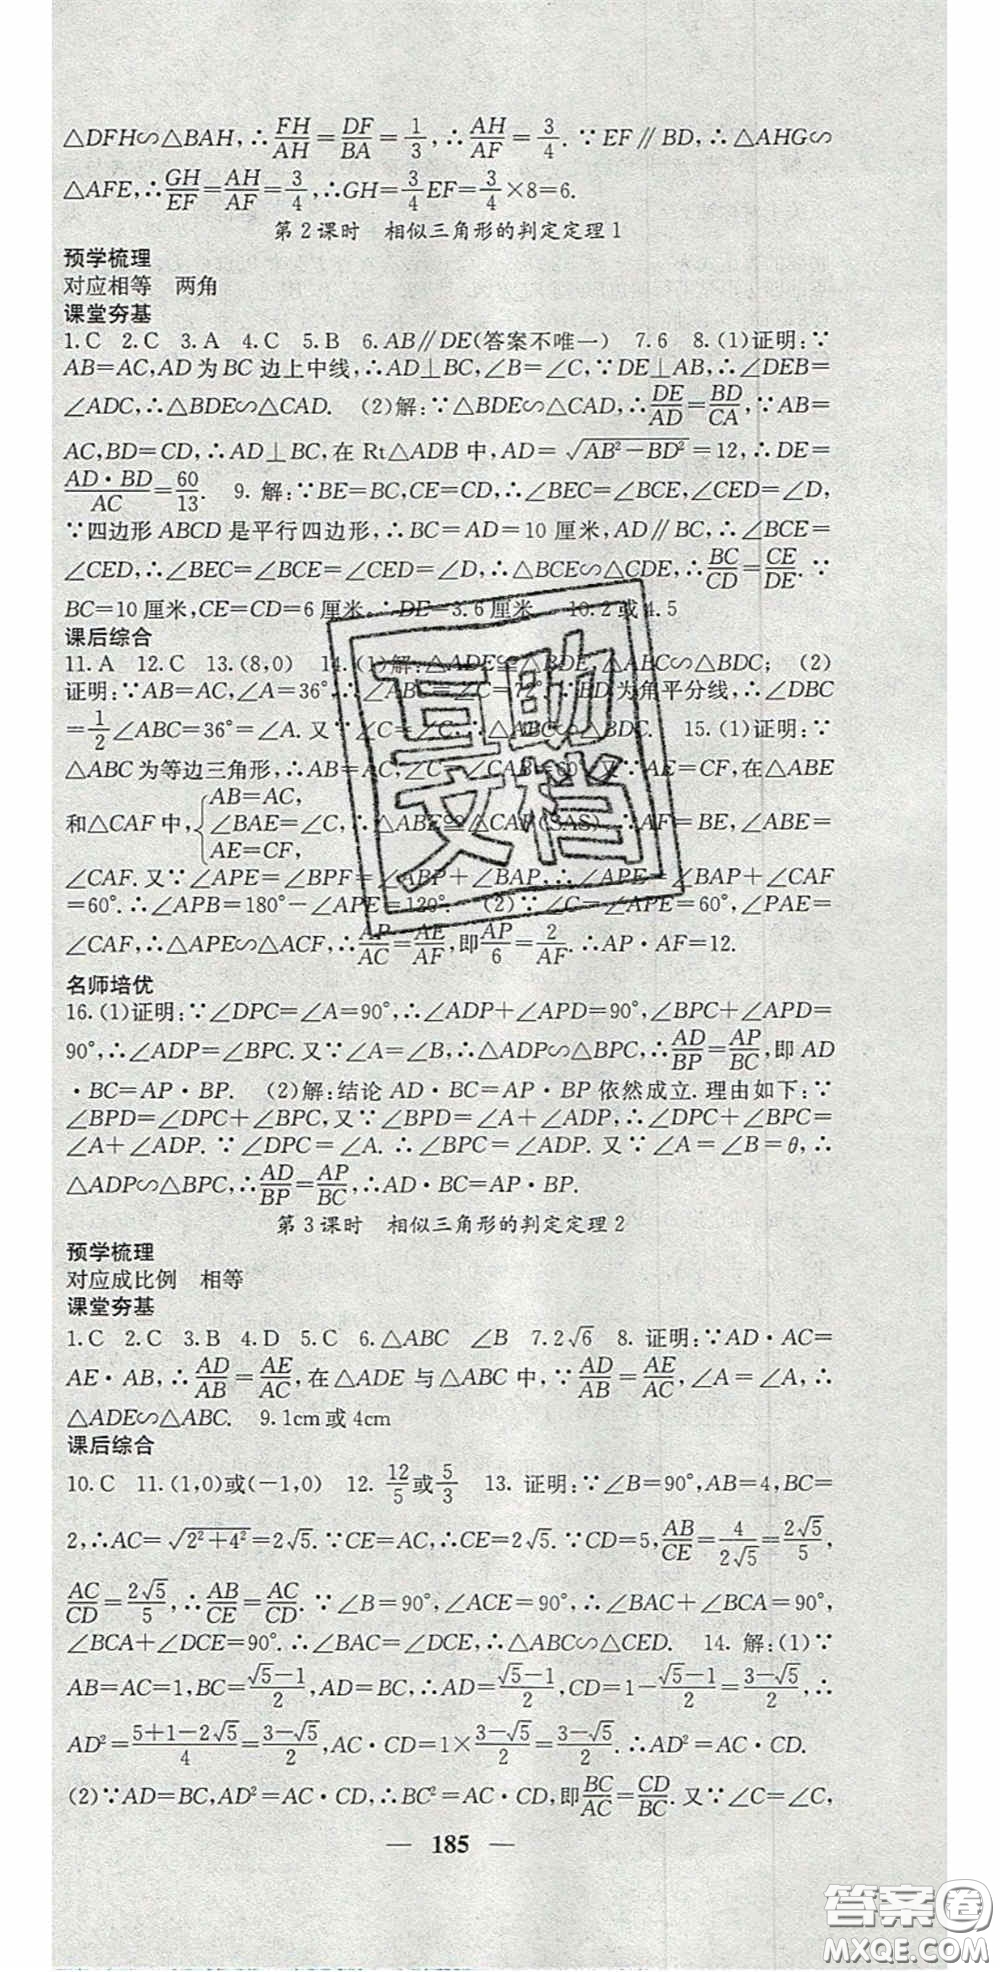 △DFH∽△BAH,∴FH/AH=DF/BA=1/3,∴AH/AF=3/4.∵EF∥BD,∴△AHG∽
△AFE,∴GH/EF=AH/AF=3/4,∴GH=3/4EF=3/4×8=6.
第2课时 相似三角形的判定定理1
预学梳理
对应相等 两角
课堂夯基
1.C 2.C 3.A 4.C 5.B 6.AB∥DE(答案不唯一) 7.6 8.(1)证明:∵
AB=AC,AD为BC边上中线,∴AD⊥BC,∠B=∠C,∵DE⊥AB,∴∠DEB=
∠ADC,∴△BDE∽△CAD. (2)解:∵△BDE∽△CAD,∴DE/AD=BD/CA,∵AB=
AC,BD=CD,∴AD⊥BC,在Rt△ADB中,AD=√(AB²-BD²)=12,∴DE=
AD·BD/AC=60/13. 9.解:∵BE=BC,CE=CD,∴∠BEC=∠BCE,∠CED=∠D,
∵四边形ABCD是平行四边形,∴BC=AD=10厘米,AD∥BC,∴∠BCE=
∠CED,∴∠BEC=∠BCE=∠CED=∠D,∴△BCE∽△CDE,∴BC/CD=CE/DE.∵
BC=10厘米,CE=CD=6厘米,∴DE=3.6厘米 10.2或4.5
课后综合
11.A 12.C 13.(8,0) 14.(1)解:△ADE≌△BDE,△ABC∽△BDC; (2)
证明:∵AB=AC,∠A=36°,∴∠ABC=∠C=72°∵BD为角平分线,∴∠DBC
=1/2∠ABC=36°=∠A.又∵∠C=∠C,∴△ABC∽△BDC. 15.(1)证明:∵
△ABC为等边三角形,∴AB=AC,∠C=∠CAB=60°,又∵AE=CF,在△ABE
和△CAF中,{AB=AC,
∠BAE=∠C,
AE=CF,
∴△ABE≌△CAF(SAS),∴AF=BE,∠ABE=
∠CAF.又∵∠APE=∠BPF=∠ABP+∠BAP,∴∠APE=∠BAP+∠CAF
=60°.∴∠APB=180°-∠APE=120°. (2)∵∠C=∠APE=60°,∠PAE=
∠CAF,∴△APE∽△ACF,∴AP/AC=AE/AF,即AP/6=2/AF.∴AP·AF=12.
名师培优
16.(1)证明:∵∠DPC=∠A=90°,∴∠ADP+∠APD=90°,∠BPC+∠APD=
90°,∴∠ADP=∠BPC.又∵∠A=∠B,∴△ADP∽△BPC,∴AD/BP=AP/BC,即AD
·BC=AP·BP. (2)解:结论AD·BC=AP·BP依然成立.理由如下:∵
∠BPD=∠DPC+∠BPC,又∵∠BPD=∠A+∠ADP,∴∠DPC+∠BPC=
∠A+∠ADP.∵∠DPC=∠A.∴∠BPC=∠ADP.又∵∠A=∠B=θ,∴
△ADP∽△BPC,∴AD/BP=AP/BC,∴AD·BC=AP·BP.
第3课时 相似三角形的判定定理2
预学梳理
对应成比例 相等
课堂夯基
1.C 2.C 3.B 4.D 5.C 6.△ABC ∠B 7.2√6 8.证明:∵AD·AC=
AE·AB,∴AD/AB=AE/AC,在△ADE与△ABC中,∵AD/AB=AE/AC,∠A=∠A,∴
△ADE∽△ABC. 9.1cm或4cm
课后综合
10.C 11.(1,0)或(-1,0) 12.12/5或5/3 13.证明:∵∠B=90°,AB=4,BC=
2,∴AC=√(2²+4²)=2√5.∵CE=AC,∴CE=2√5.∵CD=5,AB/CE=4/(2√5)=2√5/5,
AC/CD=2√5/5,∴AB/CE=AC/CD.∵∠B=90°,∠ACE=90°,∴∠BAC+∠BCA=90°,
∠BCA+∠DCE=90°.∴∠BAC=∠DCE,∴△ABC∽△CED. 14.解:(1)∵
AB=AC=1,BC=(√5-1)/2,AD=BC,∴AD=(√5-1)/2,CD=1-(√5-1)/2=(3-√5)/2,∴
AD²=(5+1-2√5)/4=(3-√5)/2,AC·CD=1×(3-√5)/2=(3-√5)/2.∴AD²=AC·CD.
(2)∵AD=BC,AD²=AC·CD,∴BC²=AC·CD,即BC/AC=CD/BC.又∵∠C=∠C,
— 185 —
互助
文档
答案圈
MXQE.COM